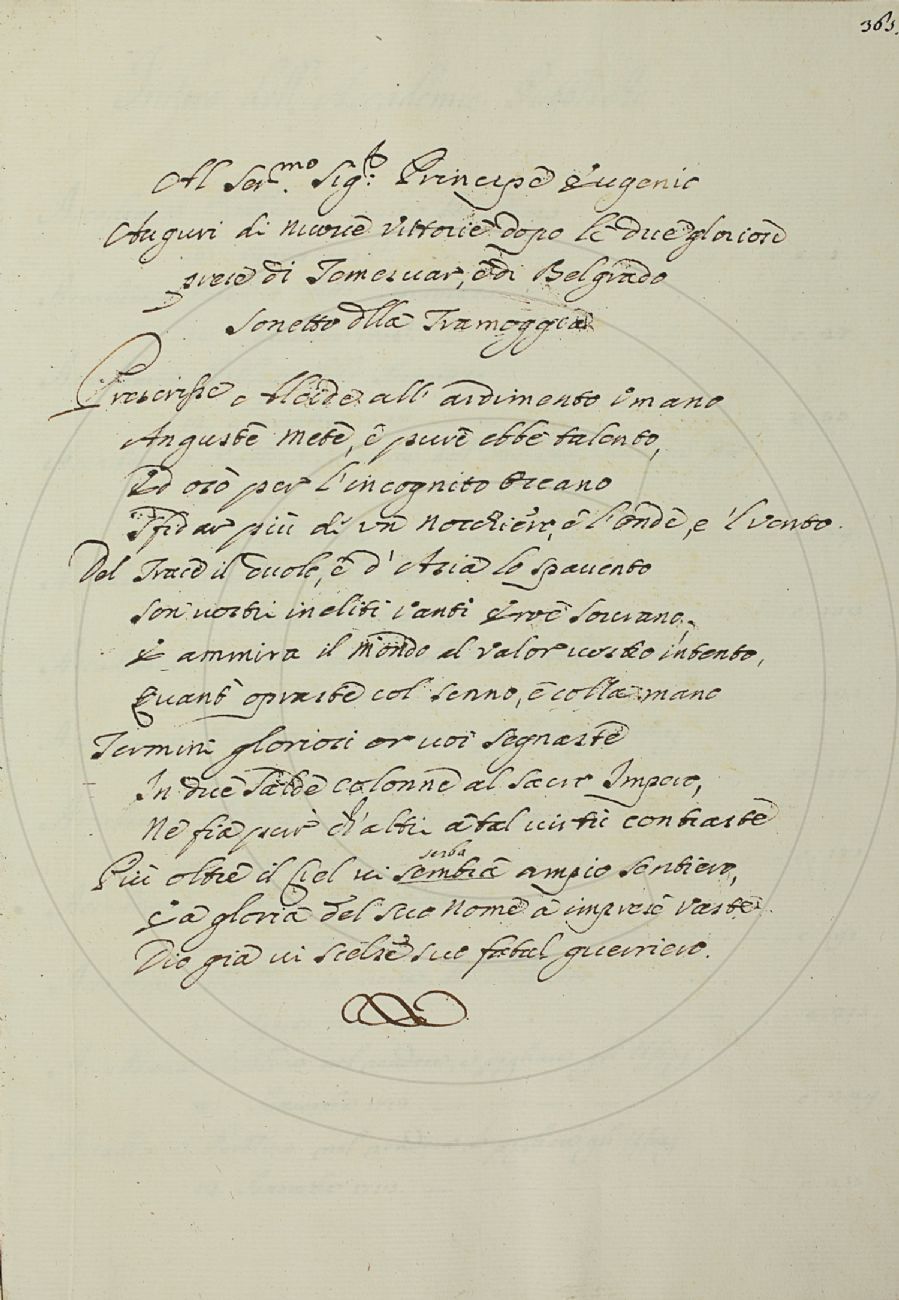 363.
Al Ser.mo Sig.r Principe Eugenio
Auguri di nuove vittorie dopo le due gloriose
prese di Temesuar, e di Belgrado
Sonetto dlla Tramoggia
Prescrisse Alcide all' ardimento umano
Anguste mete, e pure ebbe talento,
Ed osò per l'incognito Oceano
Sfidar più di un Nocchiero, e l'onde, e 'l vento.
Del Trace il duolo, e d'Asia lo spavento
Son vostri incliti vanti Eroe Sovrano,
E ammira il mondo al valor vostro intento,
Quant' opraste col senno, e colla mano
Termini gloriosi or voi segnaste
In due salde colonne al sacro Impero,
Ne fia pur ch'altri a tal virtù contraste
Più oltre il Ciel vi sembra ampio sentiero,
serba
E a gloria del suo Nome a imprese vaste
Dio già vi scelse suo fatal guerriero.